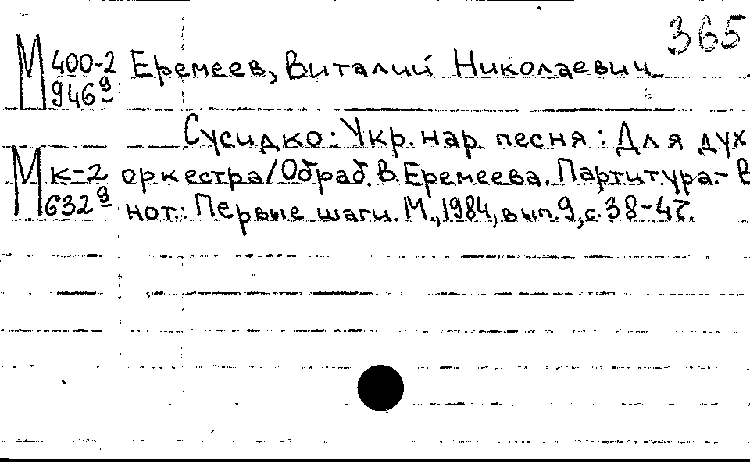 365
М 400-2 Еремеев, Виталий Николаевич
946⁹
Сусидко: Укр. нар. песня: Для дух
М к-2 оркестра/Обраб. В. Еремеева. Партитура.- В
632⁹ нот.: Первые шаги. М., 1984, вып. 9, с. 38-47.